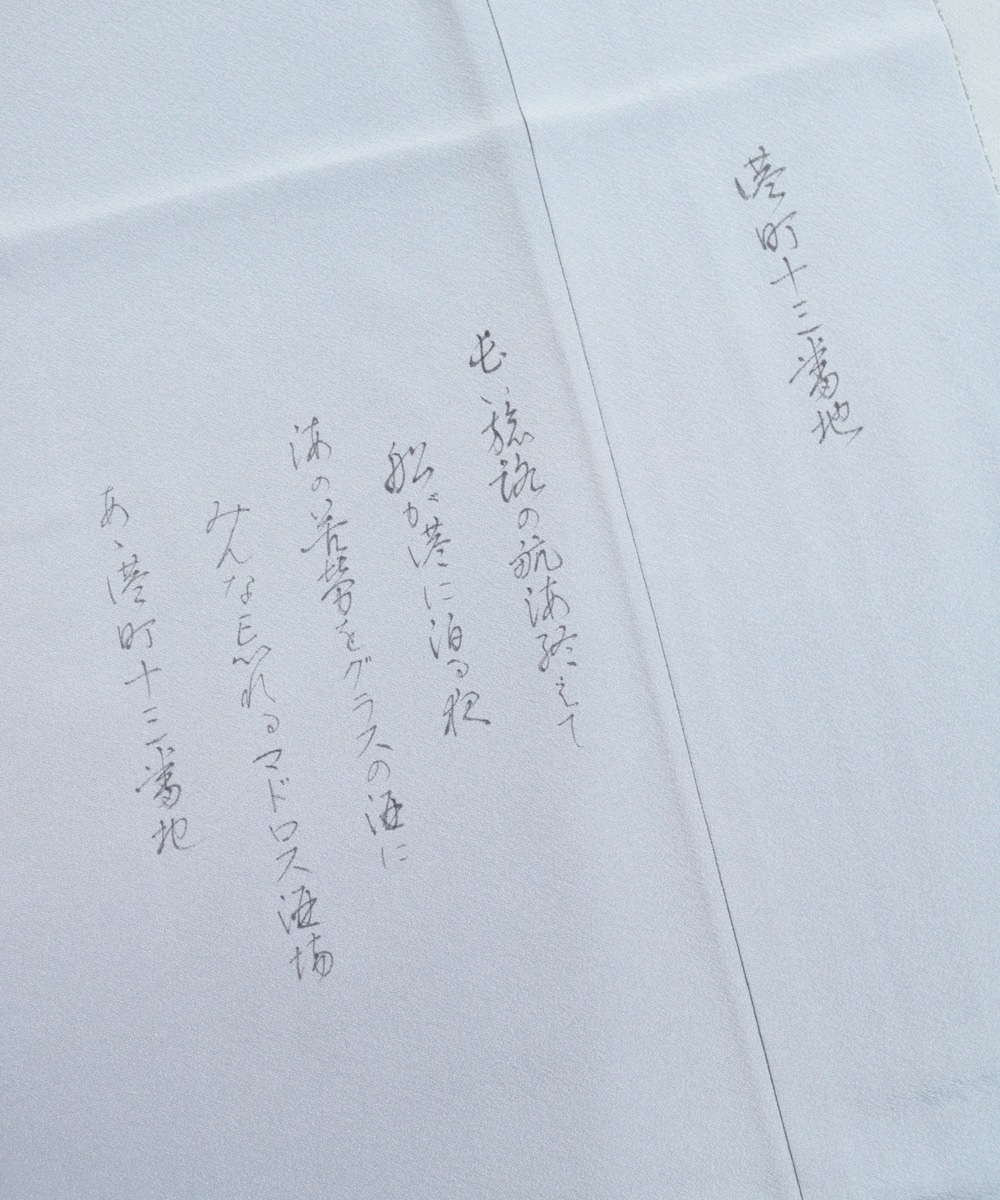 港町十三番地
長い旅路の航海終えて
船が港に泊る夜
海の苦労をグラスの酒に
みんな忘れるマドロス酒場
あゝ港町十三番地